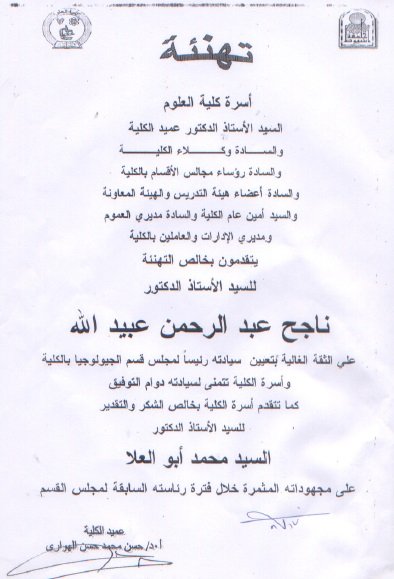 تهنئة
أسرة كلية العلوم
السيد الأستاذ الدكتور عميد الكلية
والسادة وكلاء الكلية
والسادة رؤساء مجالس الأقسام بالكلية
والسادة أعضاء هيئة التدريس والهيئة المعاونة
والسيد أمين عام الكلية والسادة مديري العموم
ومديري الإدارات والعاملين بالكلية
يتقدمون بخالص التهنئة
للسيد الأستاذ الدكتور
ناجح عبد الرحمن عبيد الله
علي الثقة الغالية بتعيين سيادته رئيساً لمجلس قسم الجيولوجيا بالكلية
وأسرة الكلية تتمنى لسيادته دوام التوفيق
كما تتقدم أسرة الكلية بخالص الشكر والتقدير
للسيد الأستاذ الدكتور
السيد محمد أبو العلا
على مجهوداته المثمرة خلال فترة رئاسته السابقة لمجلس القسم
عميد الكلية
أ.د/ حسن محمد حسن الهوارى